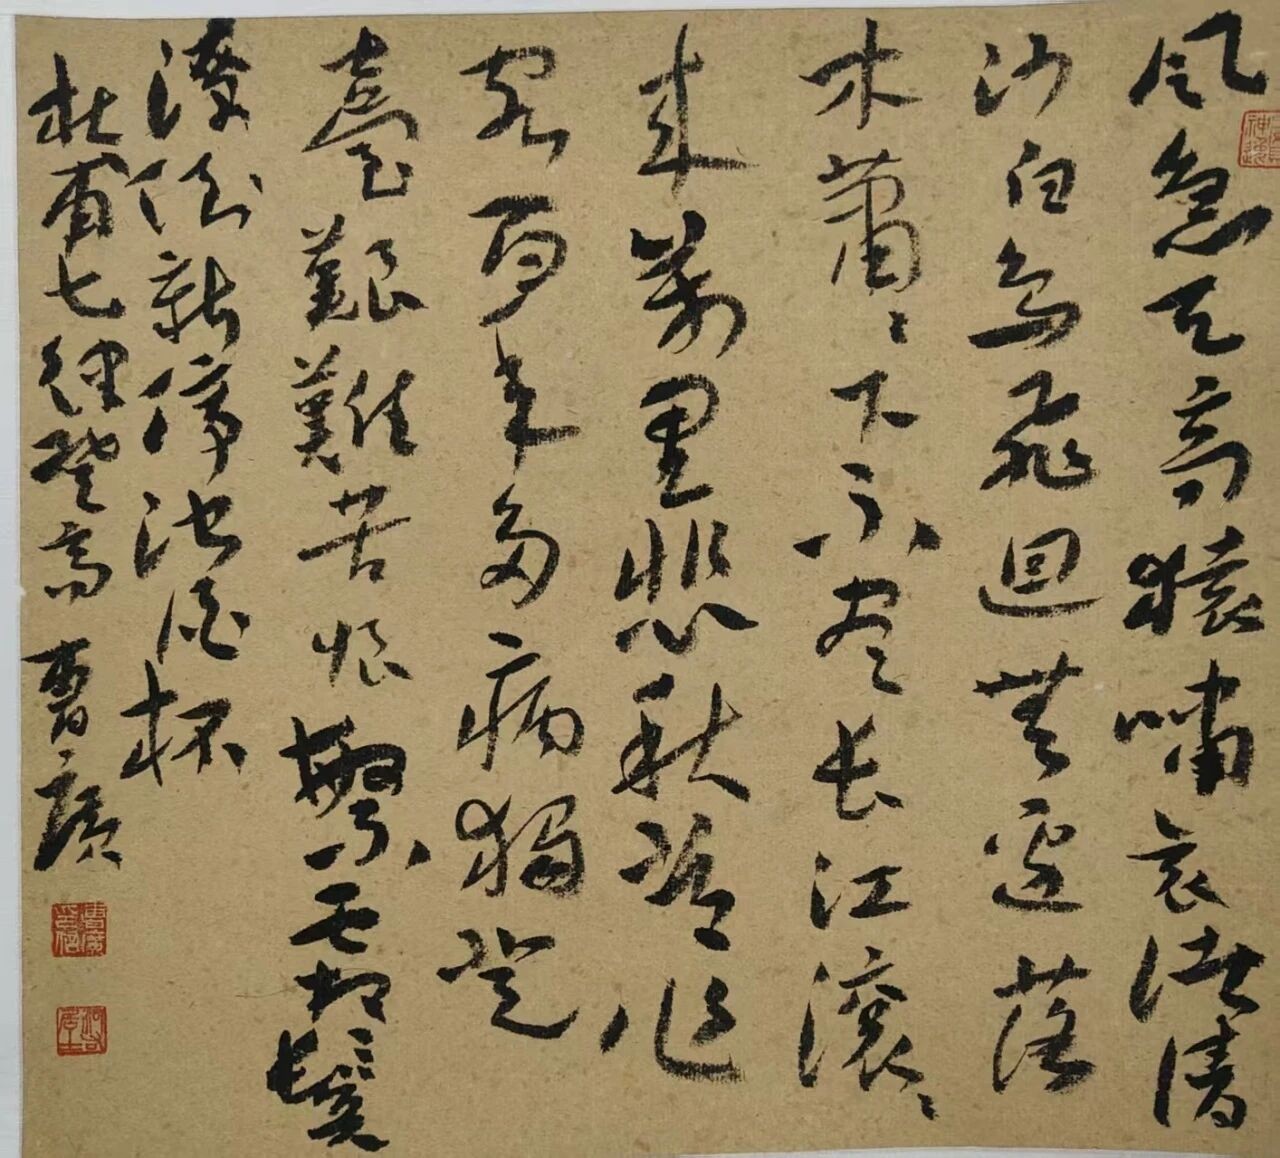 風急天高猿嘯哀渚清
沙白鳥飛迴無邊落
木蕭〻下不盡长江滾〻
来萬里悲秋常作
客百年多病獨登
臺艱難苦恨繁霜鬢
潦倒新停濁酒杯
杜甫七律登高 曹廣